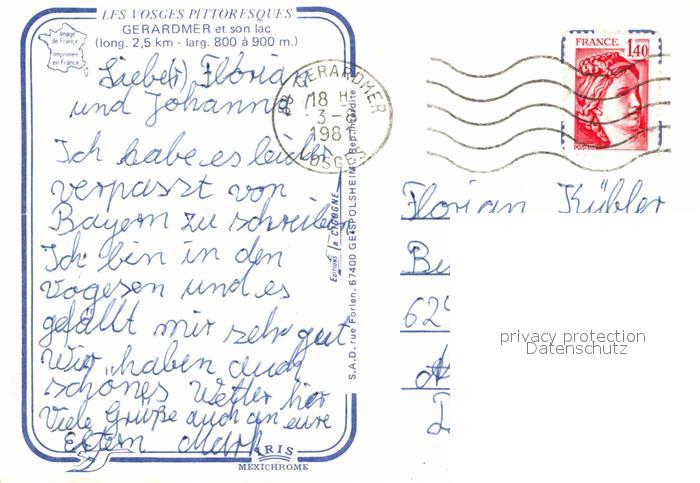 LES VOSGES PITTORESQUES
GERARDMER et son lac
(long. 2,5 km - larg. 800 à 900 m.)
Image
de France
Imprimée
en France
Liebe(r) Florian
und Johanna!
Ich habe es leider
verpasst von
Bayern zu schreiben
Ich bin in den
Vogesen und es
gefällt mir sehr gut
Wir haben auch
schönes Wetter hier
Viele Grüße auch an eure
Eltern Mark
IRIS
MEXICHROME
Editions la CIGOGNE
S.A.D. rue Forlen. 67400 GEISPOLSHEIM Rep. interdite
88 GERARDMER
18 H
3-8
1981
VOSGES
FRANCE
1,40
POSTES
Florian Kübler
62
privacy protection
Datenschutz